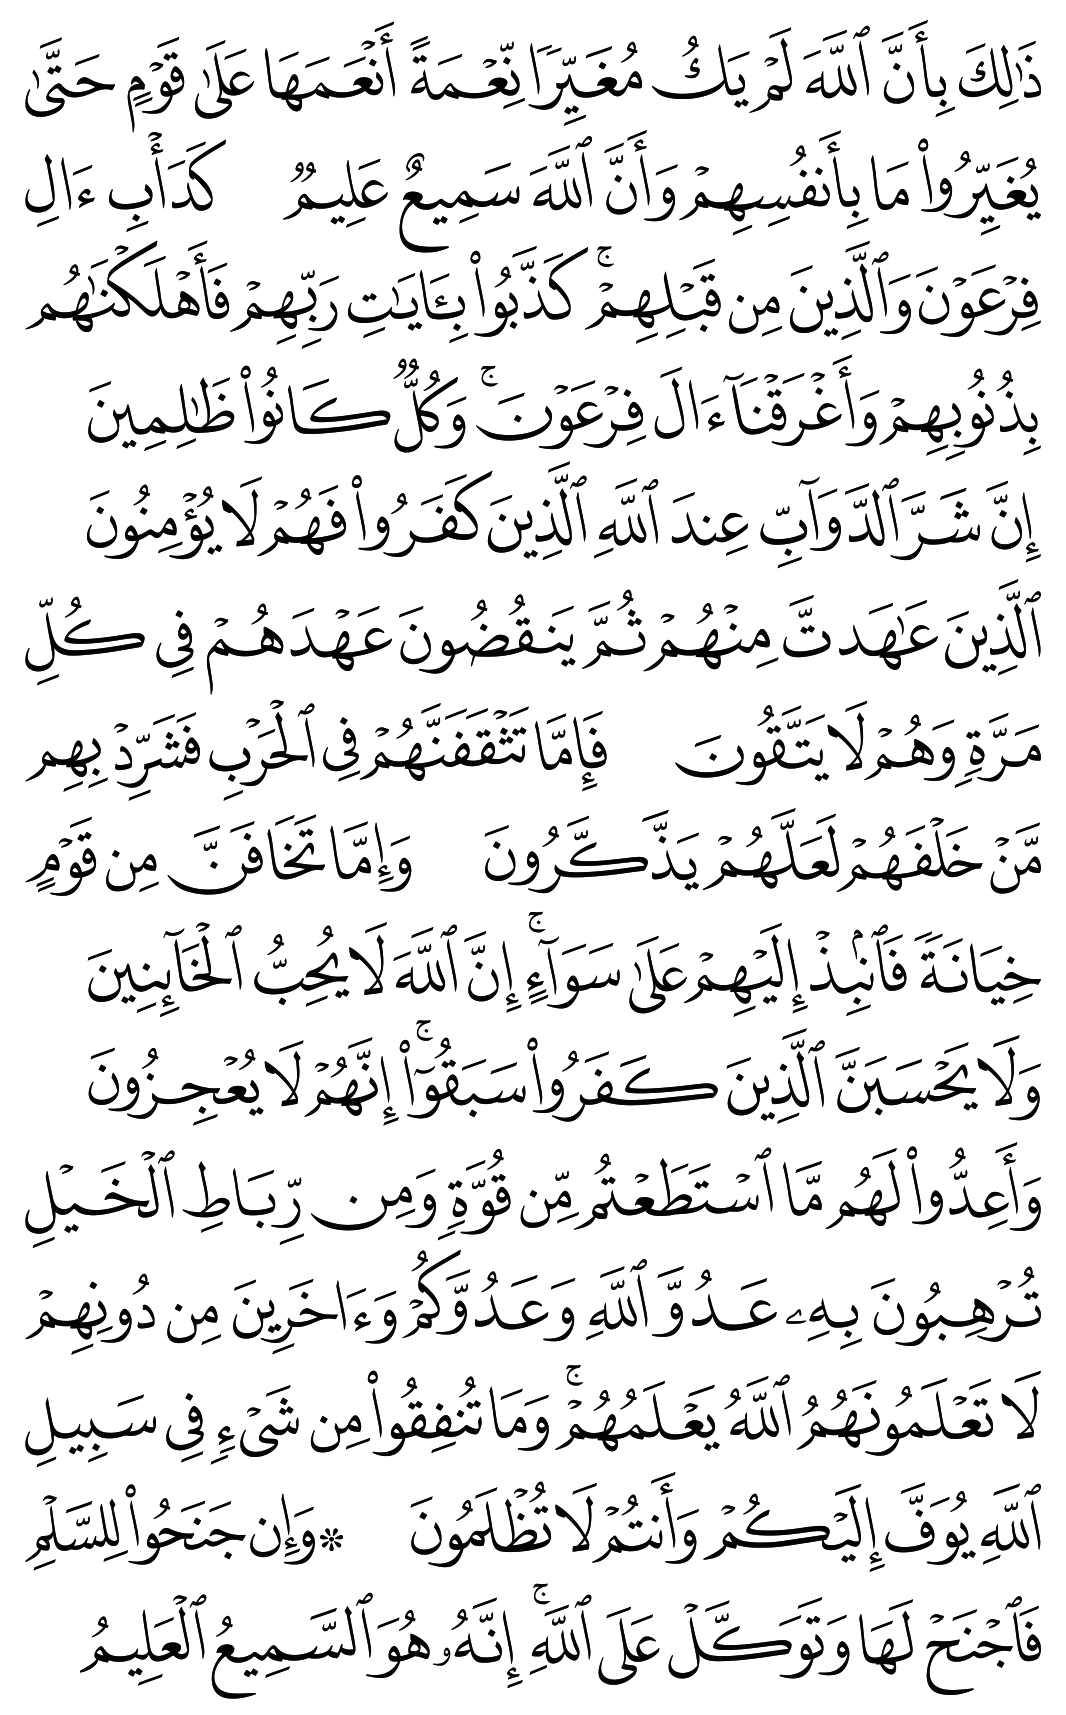 ذَٰلِكَ بِأَنَّ ٱللَّهَ لَمۡ يَكُ مُغَيِّرٗا نِّعۡمَةً أَنۡعَمَهَا عَلَىٰ قَوۡمٍ حَتَّىٰ
يُغَيِّرُواْ مَا بِأَنفُسِهِمۡ وَأَنَّ ٱللَّهَ سَمِيعٌ عَلِيمٞ كَدَأۡبِ ءَالِ
فِرۡعَوۡنَ وَٱلَّذِينَ مِن قَبۡلِهِمۡۚ كَذَّبُواْ بِـَٔايَٰتِ رَبِّهِمۡ فَأَهۡلَكۡنَٰهُم
بِذُنُوبِهِمۡ وَأَغۡرَقۡنَآ ءَالَ فِرۡعَوۡنَۚ وَكُلّٞ كَانُواْ ظَٰلِمِينَ
إِنَّ شَرَّ ٱلدَّوَآبِّ عِندَ ٱللَّهِ ٱلَّذِينَ كَفَرُواْ فَهُمۡ لَا يُؤۡمِنُونَ
ٱلَّذِينَ عَٰهَدتَّ مِنۡهُمۡ ثُمَّ يَنقُضُونَ عَهۡدَهُمۡ فِي كُلِّ
مَرَّةٖ وَهُمۡ لَا يَتَّقُونَ فَإِمَّا تَثۡقَفَنَّهُمۡ فِي ٱلۡحَرۡبِ فَشَرِّدۡ بِهِم
مَّنۡ خَلۡفَهُمۡ لَعَلَّهُمۡ يَذَّكَّرُونَ وَإِمَّا تَخَافَنَّ مِن قَوۡمٍ
خِيَانَةٗ فَٱنۢبِذۡ إِلَيۡهِمۡ عَلَىٰ سَوَآءٍۚ إِنَّ ٱللَّهَ لَا يُحِبُّ ٱلۡخَآئِنِينَ
وَلَا يَحۡسَبَنَّ ٱلَّذِينَ كَفَرُواْ سَبَقُوٓاْۚ إِنَّهُمۡ لَا يُعۡجِزُونَ
وَأَعِدُّواْ لَهُم مَّا ٱسۡتَطَعۡتُم مِّن قُوَّةٖ وَمِن رِّبَاطِ ٱلۡخَيۡلِ
تُرۡهِبُونَ بِهِۦ عَدُوَّ ٱللَّهِ وَعَدُوَّكُمۡ وَءَاخَرِينَ مِن دُونِهِمۡ
لَا تَعۡلَمُونَهُمُ ٱللَّهُ يَعۡلَمُهُمۡۚ وَمَا تُنفِقُواْ مِن شَيۡءٖ فِي سَبِيلِ
ٱللَّهِ يُوَفَّ إِلَيۡكُمۡ وَأَنتُمۡ لَا تُظۡلَمُونَ ۞وَإِن جَنَحُواْ لِلسَّلۡمِ
فَٱجۡنَحۡ لَهَا وَتَوَكَّلۡ عَلَى ٱللَّهِۚ إِنَّهُۥ هُوَ ٱلسَّمِيعُ ٱلۡعَلِيمُ